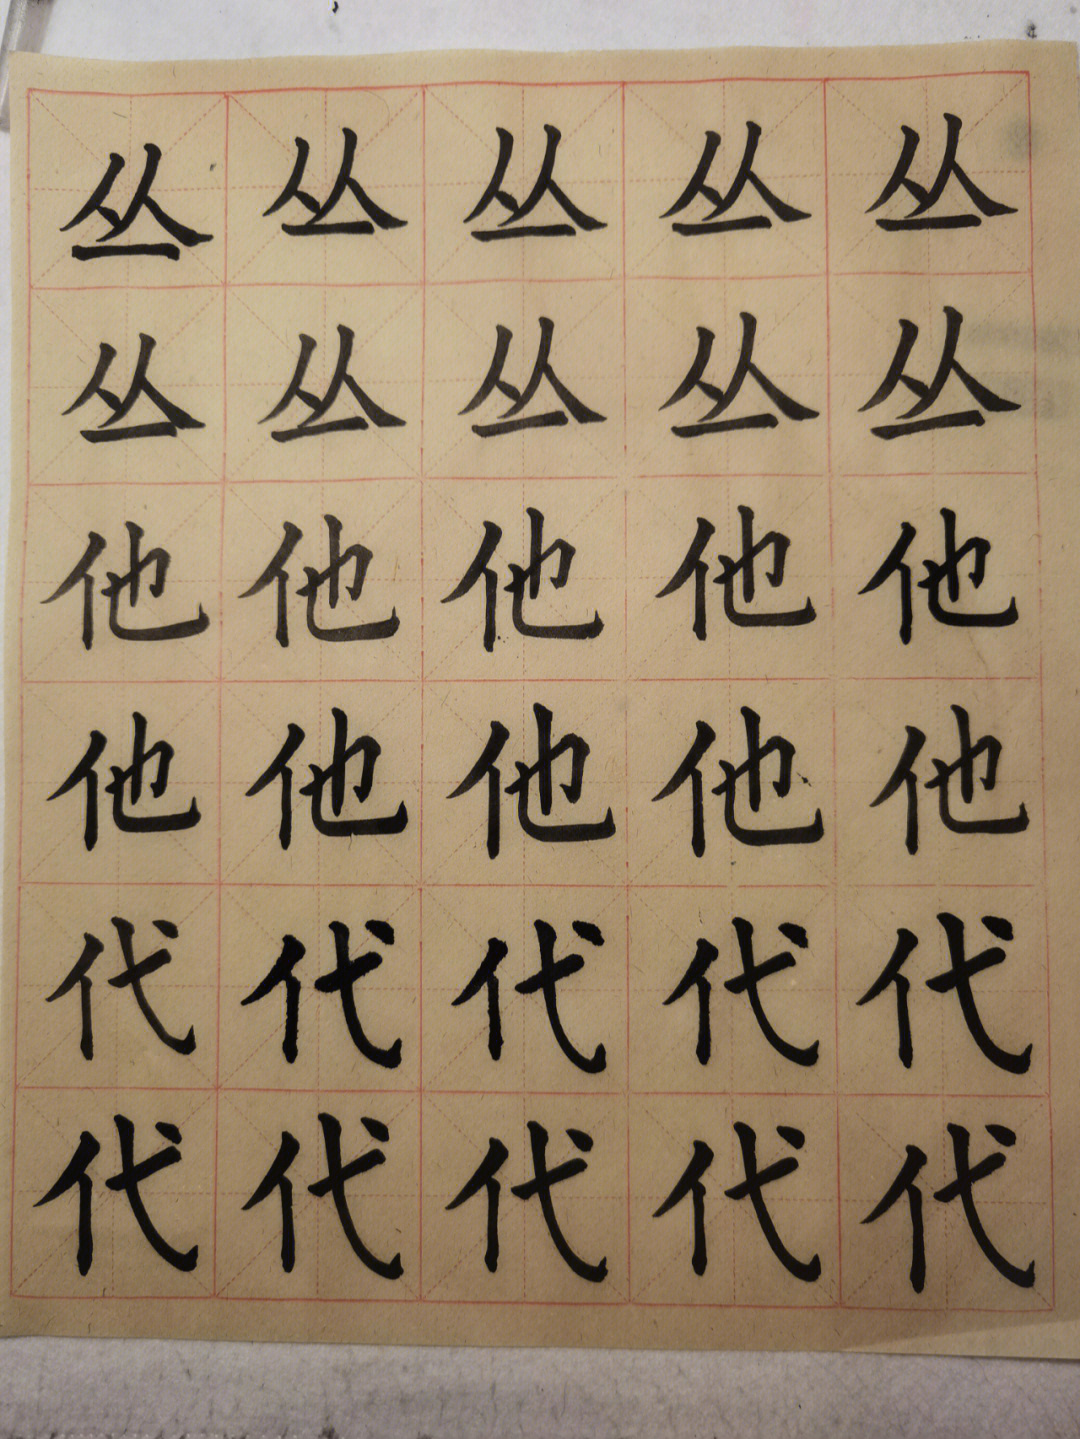 丛丛丛丛丛
丛丛丛丛丛
他他他他他
他他他他他
代代代代代
代代代代代